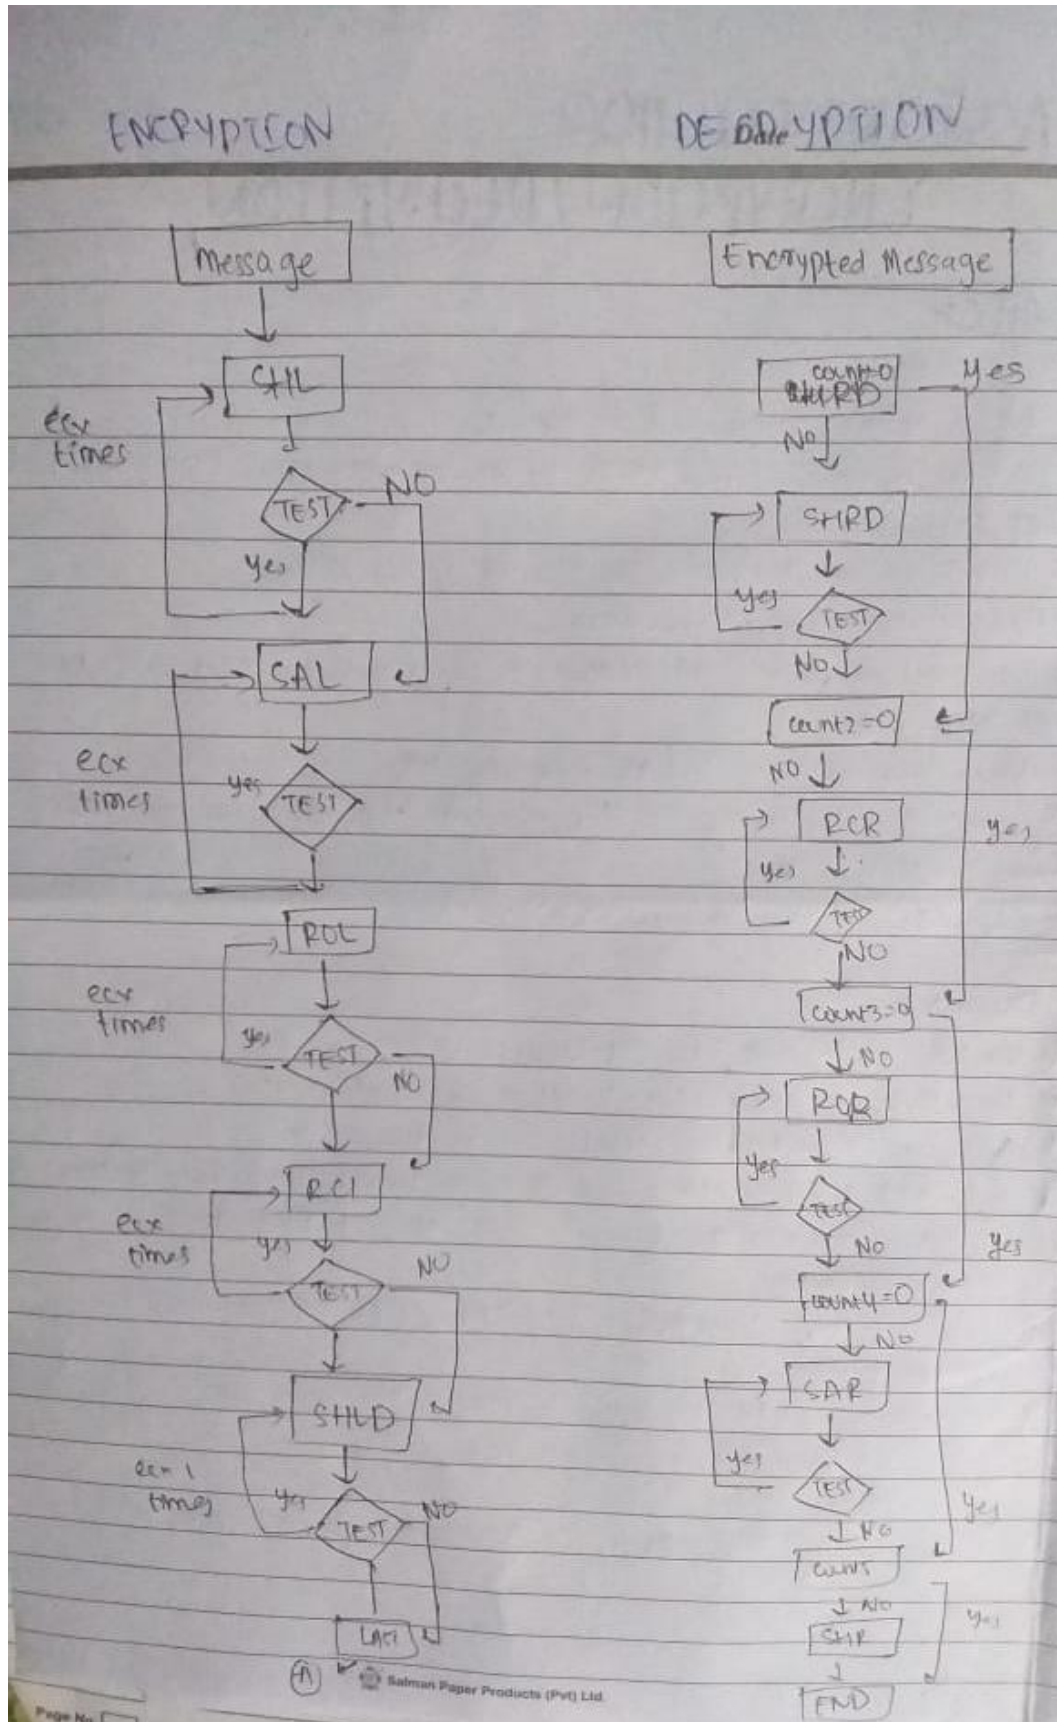 ENCRYPTION
Message
SHL
ecx
times
TEST
NO
yes
SAL
ecx
times
yes
TEST
ROL
ecx
times
yes
TEST
NO
RCL
ecx
times
yes
TEST
NO
SHLD
times
yes
TEST
NO
LAST
A
Salman Paper Products (Pvt) Ltd
Page No.
Date
YPTION
Encrypted Message
count=0
Yes
NO
SHRD
yes
TEST
NO
count2=0
NO
RCR
yes
yes
TEST
NO
count3=0
NO
ROR
yes
TEST
NO
yes
count4=0
NO
SAR
yes
TEST
yes
NO
count5
NO
yes
SHR
END